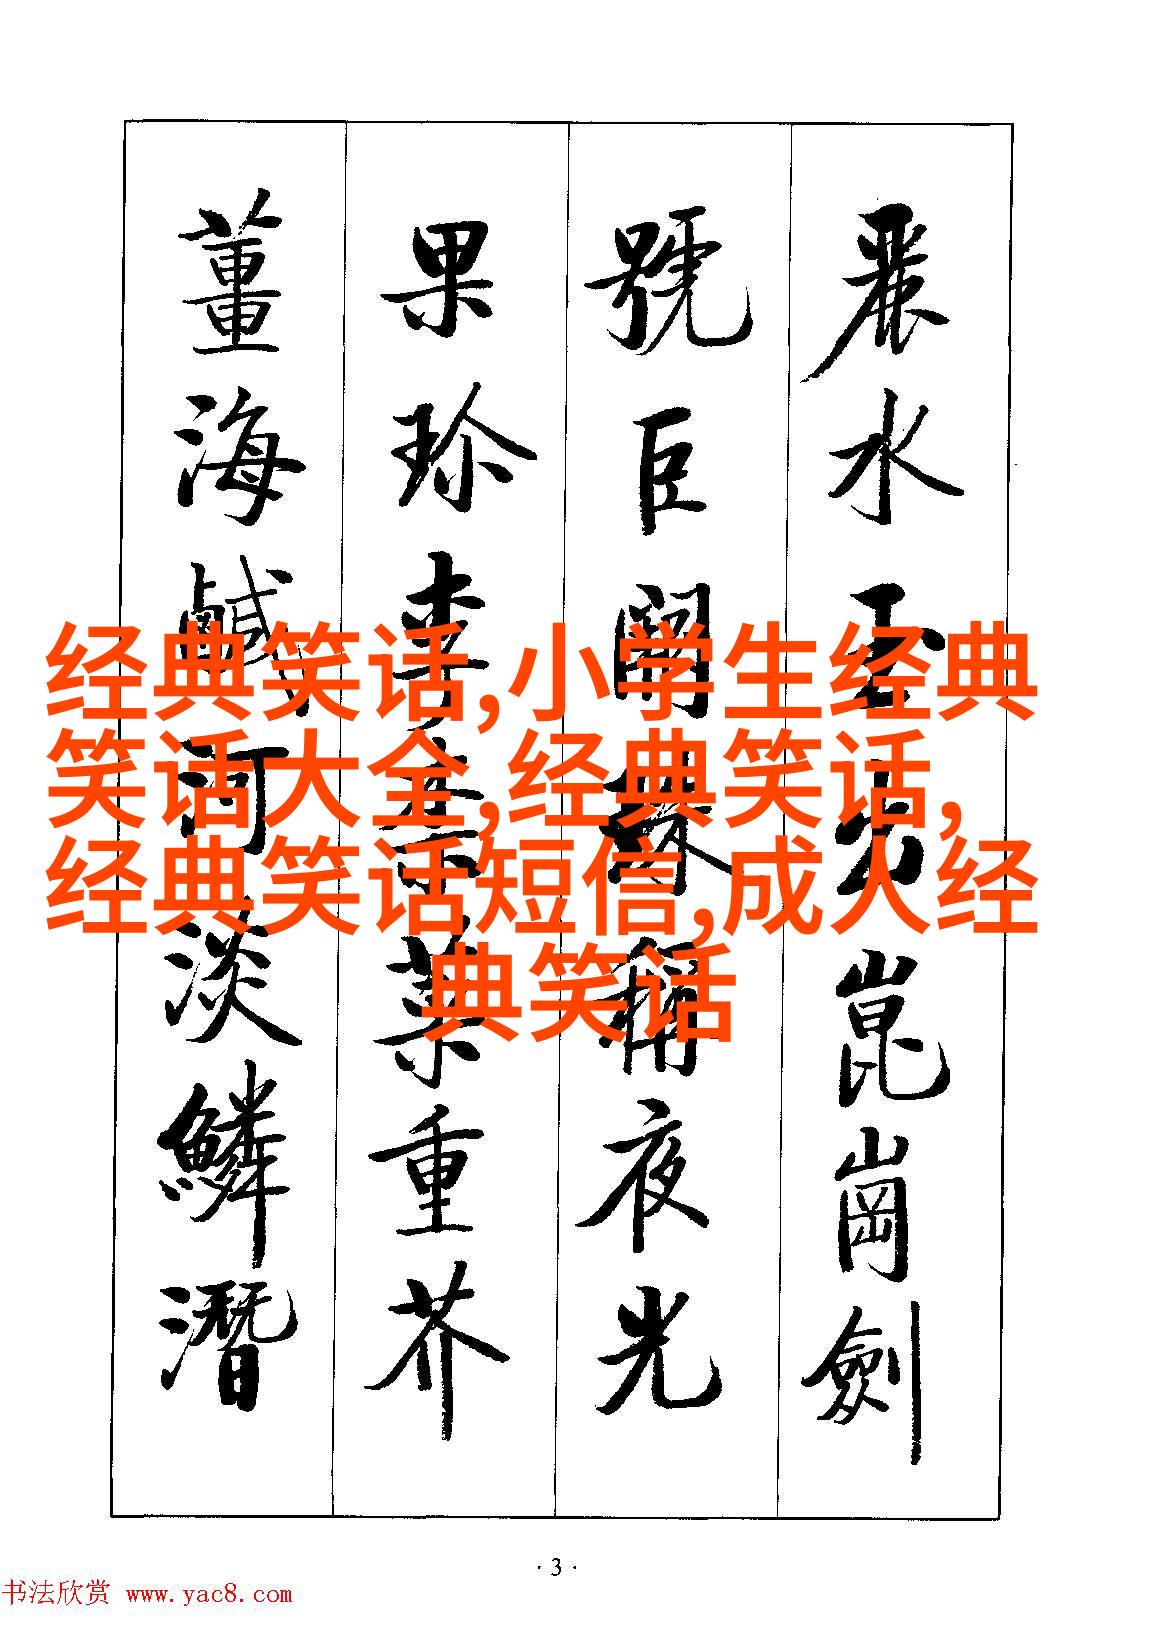 麗水玉出崑崗劍
號巨闕珠稱夜光
果珍李柰菜重芥
薑海鹹河淡鱗潛
经典笑话,小学生经典
笑话大全,经典笑话,
经典笑话短信,成人经
典笑话
·3·
书法欣赏 www.yac8.com